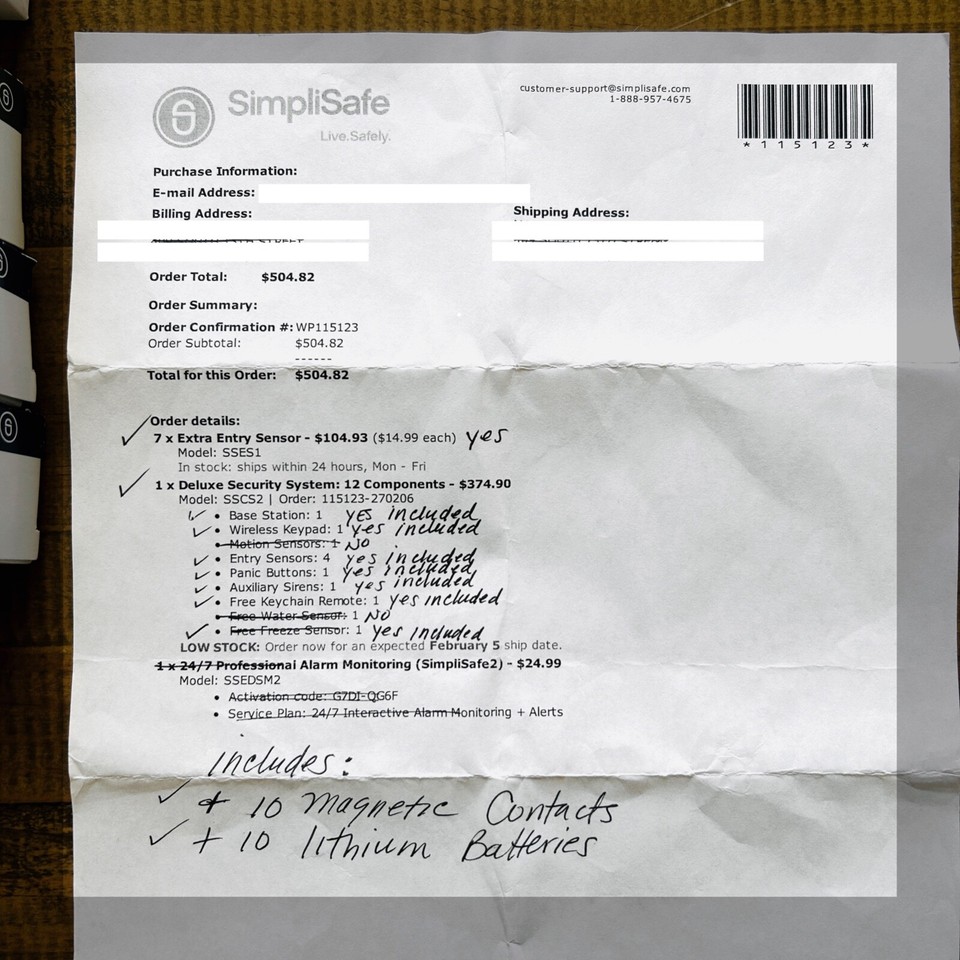 SimpliSafe
Live.Safely.
customer-support@simplisafe.com
1-888-957-4675
*115123*
Purchase Information:
E-mail Address:
Billing Address:
Shipping Address:
Order Total: $504.82
Order Summary:
Order Confirmation #: WP115123
Order Subtotal: $504.82
------
Total for this Order: $504.82
Order details:
7 x Extra Entry Sensor - $104.93 ($14.99 each) yes
Model: SSES1
In stock: ships within 24 hours, Mon - Fri
1 x Deluxe Security System: 12 Components - $374.90
Model: SSCS2 | Order: 115123-270206
• Base Station: 1 yes included
• Wireless Keypad: 1 yes included
• Motion Sensors: 1 NO
• Entry Sensors: 4 yes included
• Panic Buttons: 1 yes included
• Auxiliary Sirens: 1 yes included
• Free Keychain Remote: 1 yes included
• Free Water Sensor: 1 NO
• Free Freeze Sensor: 1 yes included
LOW STOCK: Order now for an expected February 5 ship date.
1 x 24/7 Professional Alarm Monitoring (SimpliSafe2) - $24.99
Model: SSEDSM2
• Activation code: G7DI-QG6F
• Service Plan: 24/7 Interactive Alarm Monitoring + Alerts
includes:
+ 10 Magnetic Contacts
+ 10 lithium Batteries